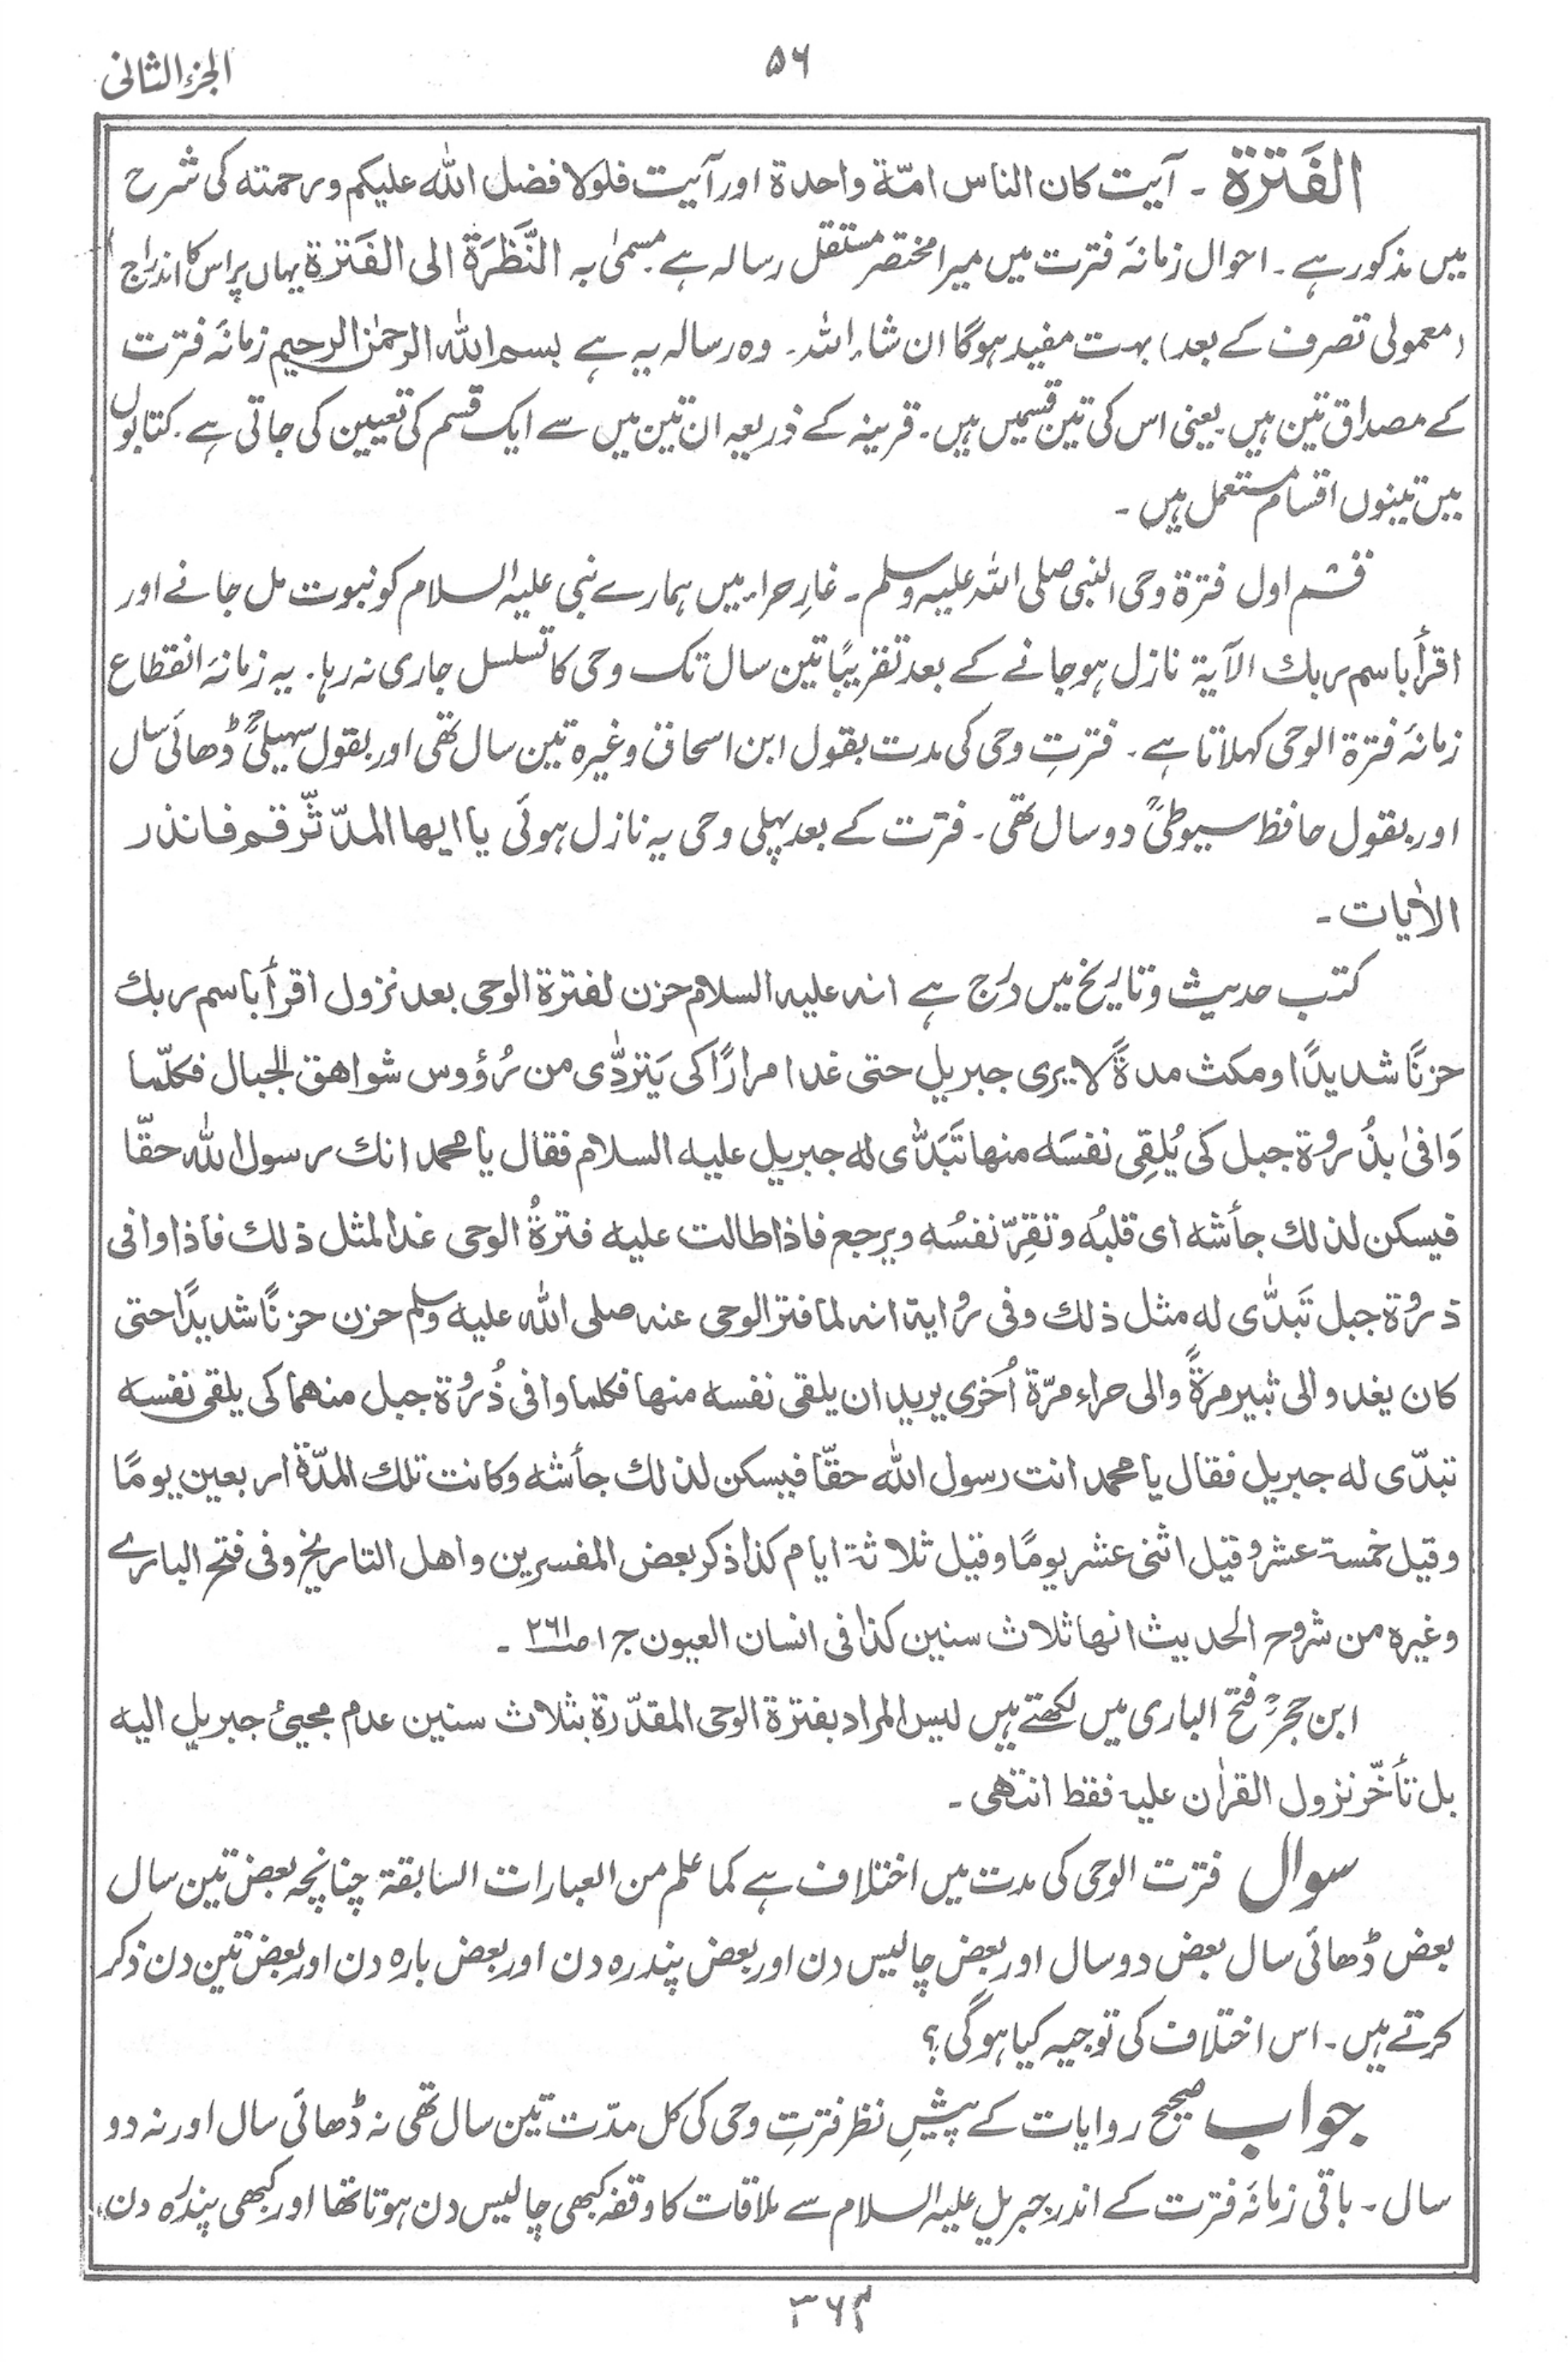 الجزء الثانی
۵۶
الفَترة ۔ آیت کان الناس امّة واحدة اور آیت فلولا فضل اللہ علیکم ورحمته کی شرح
میں مذکور ہے ۔ احوال زمانۂ فترت میں میرا مختصر مستقل رسالہ ہے مسمیٰ بہ النَّظرَة الی الفَترة یہاں پر اس کا اندراج
(معمولی تصرف کے بعد) بہت مفید ہوگا ان شاء اللہ ۔ وہ رسالہ یہ ہے بسم اللہ الرحمٰن الرحیم زمانۂ فترت
کے مصداق تین ہیں۔ یعنی اس کی تین قسمیں ہیں ۔ قرینہ کے ذریعہ ان تین میں سے ایک قسم کی تعیین کی جاتی ہے ۔ کتابوں
میں تینوں اقسام مستعمل ہیں ۔
قسم اول فترة وحی النبی صلی اللہ علیہ وسلم ۔ غارِ حراء میں ہمارے نبی علیہ السلام کو نبوت مل جانے اور
اقرأ باسم ربك الآیة نازل ہوجانے کے بعد تقریبًا تین سال تک وحی کا تسلسل جاری نہ رہا ۔ یہ زمانۂ انقطاع
زمانۂ فترة الوحی کہلاتا ہے ۔ فترتِ وحی کی مدت بقول ابن اسحاق وغیرہ تین سال تھی اور بقول سہیلیؒ ڈھائی سال
اور بقول حافظ سیوطیؒ دو سال تھی ۔ فترت کے بعد پہلی وحی یہ نازل ہوئی یا ایها المدّثّر قم فانذر
الاٰیات ۔
کتب حدیث و تاریخ میں درج ہے انه علیه السلام حزن لفترة الوحی بعد نزول اقرأ باسم ربك
حزنًا شدیدًا ومکث مدةً لا یری جبریل حتی غدا مرارًا کی یَتردّٰی من رُؤوس شواهق الجبال فکلّما
وَافیٰ بذُروة جبل کی یُلقِی نفسَه منها تَبَدّٰی له جبریل علیه السلام فقال یا محمد انك رسول اللہ حقّا
فیسکن لذلك جأشه ای قلبُه وتقِرّ نفسُه ویرجع فاذا طالت علیه فترةُ الوحی غدا لمثل ذلك فاذا وافی
ذروة جبل تَبَدّٰی له مثل ذلك وفی روایة انه لما فتر الوحی عنه صلی اللہ علیه وسلم حزن حزنًا شدیدًا حتی
کان یغدو الی ثبیر مرةً والی حراء مرّة اُخری یرید ان یلقی نفسه منها فکلما وافی ذُروة جبل منهما کی یلقی نفسه
تبدّی له جبریل فقال یا محمد انت رسول اللہ حقّا فیسکن لذلك جأشه وکانت تلك المدّة اربعین یومًا
وقیل خمسة عشر وقیل اثنی عشر یومًا وقیل ثلاثة ایام کذا ذکر بعض المفسرین واهل التاریخ وفی فتح الباری
وغیره من شروح الحدیث انها ثلاث سنین کذا فی انسان العیون ج ۱ ص ۲۶۱ ۔
ابن حجرؒ فتح الباری میں لکھتے ہیں لیس المراد بفترة الوحی المقدّرة بثلاث سنین عدم مجیئ جبریل الیه
بل تأخّر نزول القراٰن علیه فقط انتهی ۔
سوال فترت الوحی کی مدت میں اختلاف ہے کما علم من العبارات السابقة چنانچہ بعض تین سال
بعض ڈھائی سال بعض دو سال اور بعض چالیس دن اور بعض پندرہ دن اور بعض بارہ دن اور بعض تین دن ذکر
کرتے ہیں ۔ اس اختلاف کی توجیہ کیا ہوگی؟
جواب صحیح روایات کے پیشِ نظر فترتِ وحی کی کل مدّت تین سال تھی نہ ڈھائی سال اور نہ دو
سال ۔ باقی زمانۂ فترت کے اندر جبریل علیہ السلام سے ملاقات کا وقفہ کبھی چالیس دن ہوتا تھا اور کبھی پندرہ دن،
۳۶۴